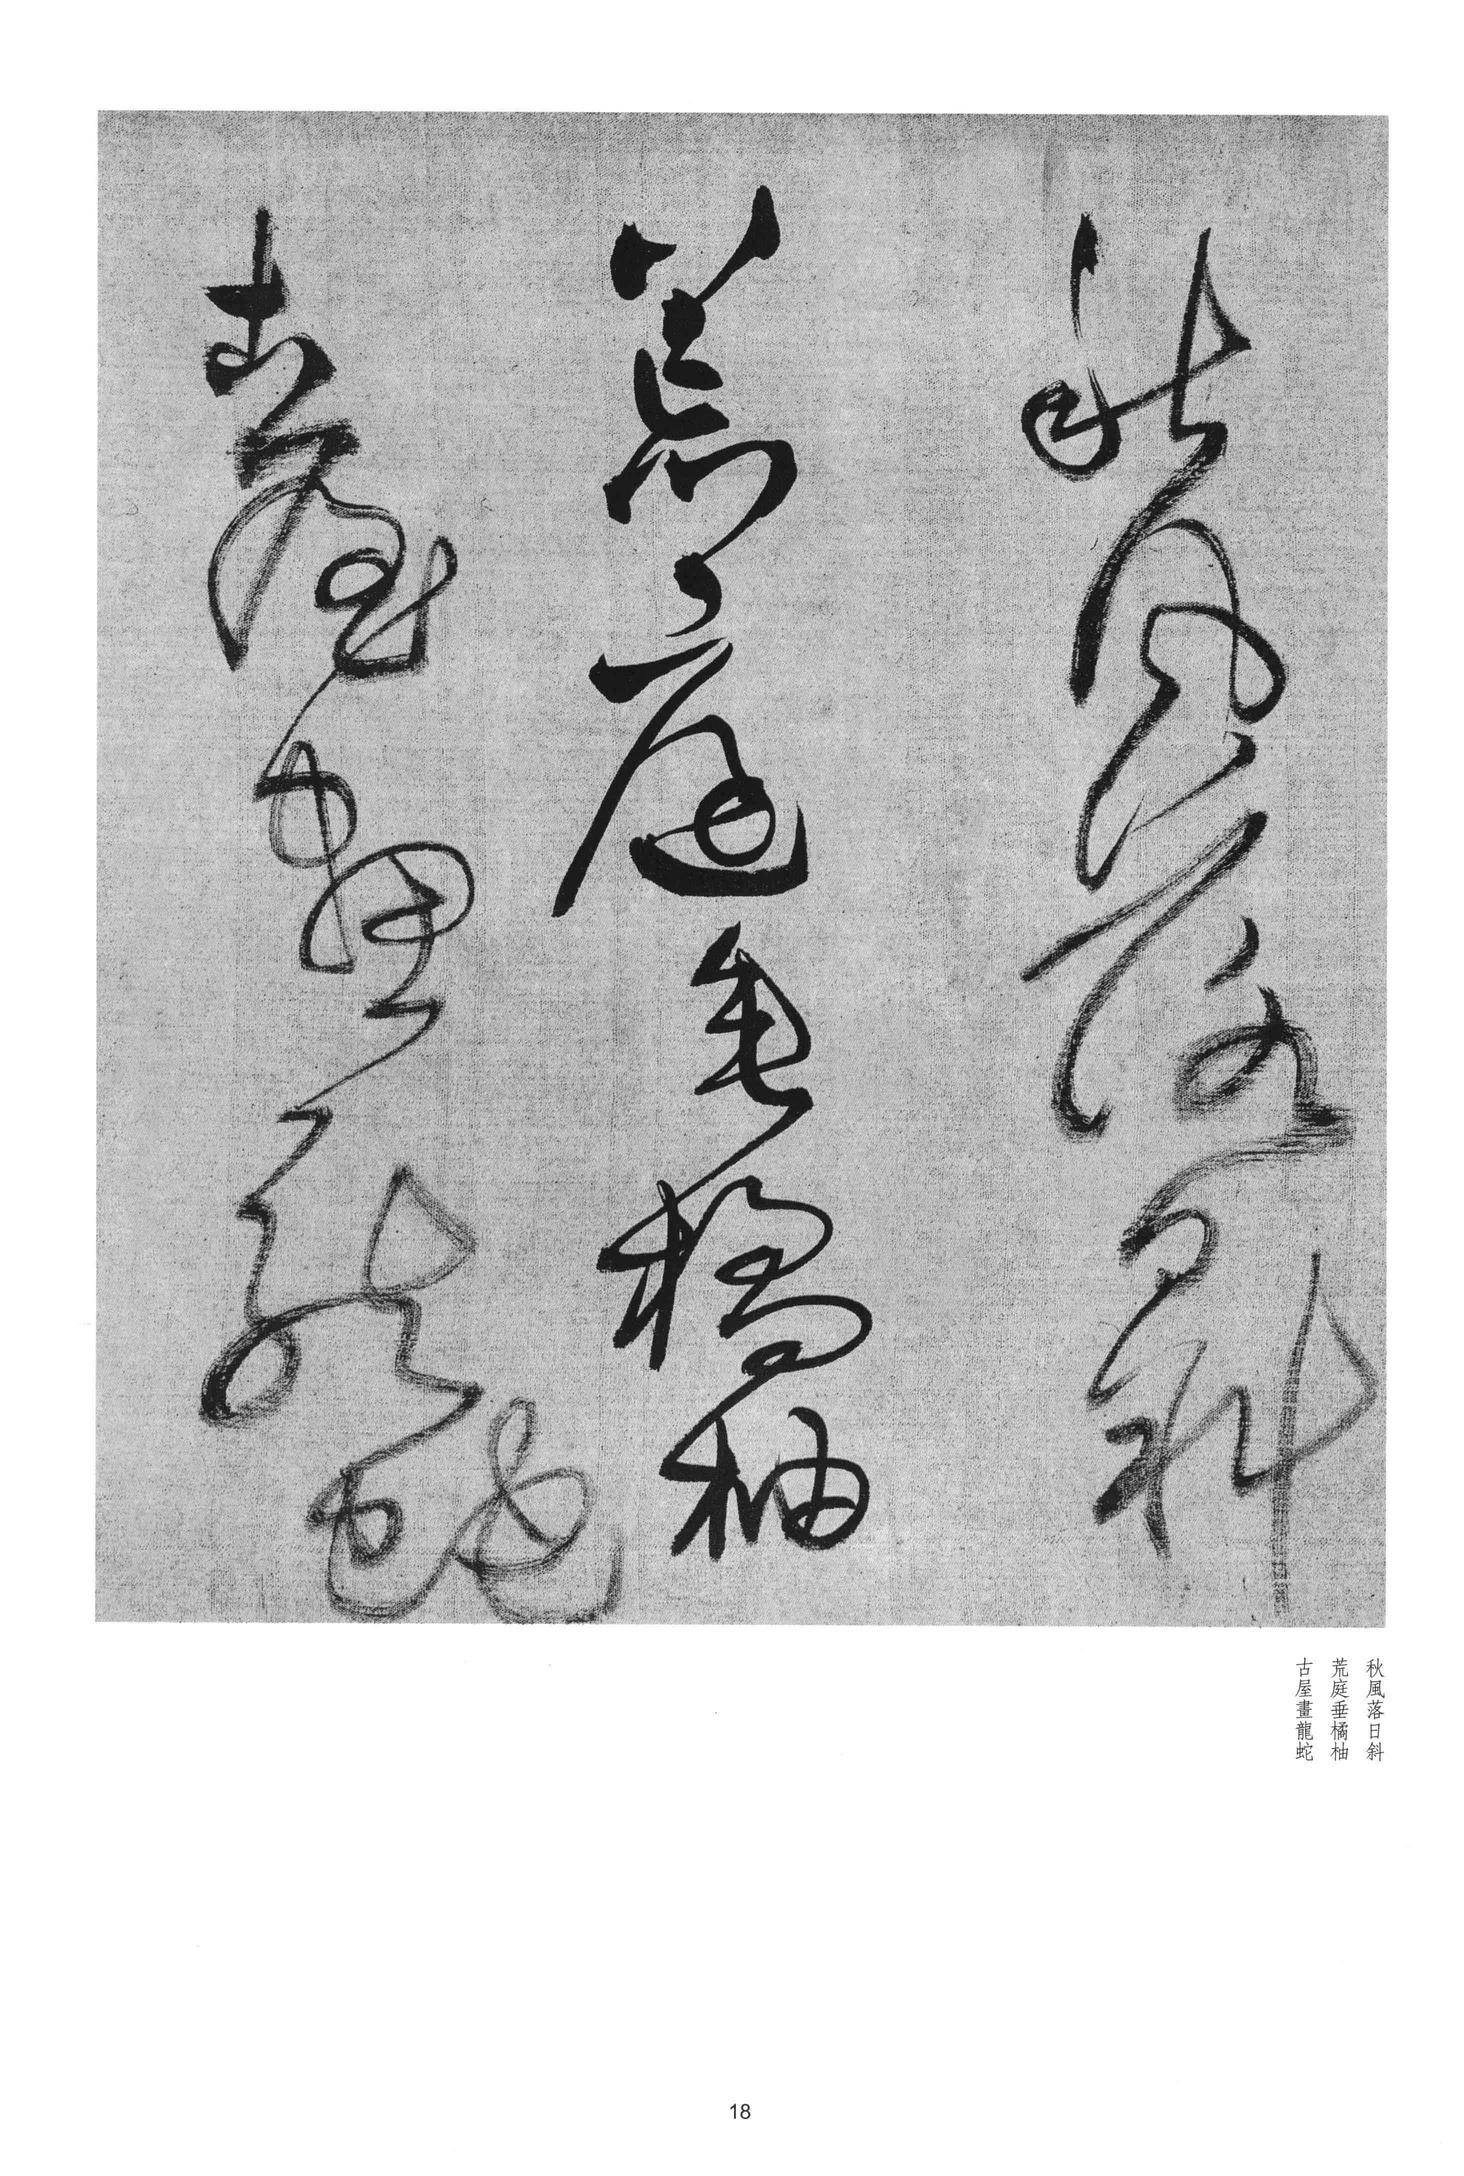 秋風落日斜
荒庭垂橘柚
古屋畫龍蛇
秋風落日斜
荒庭垂橘柚
古屋畫龍蛇
18